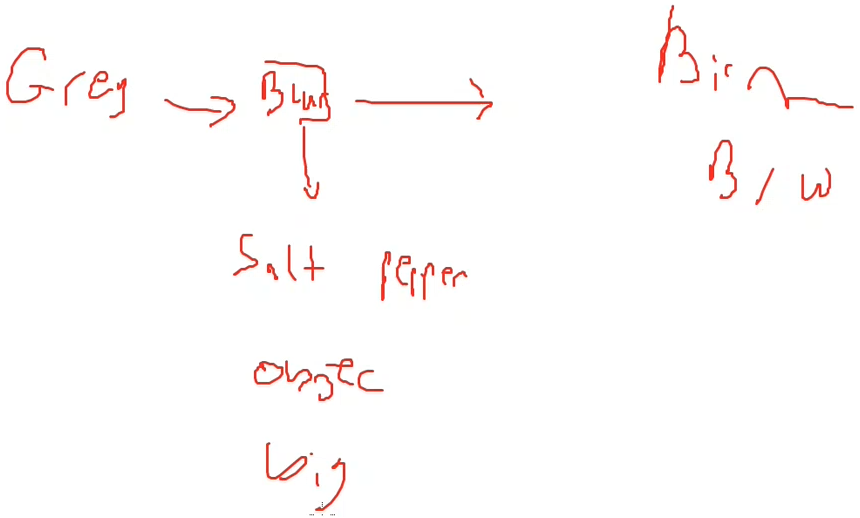 Grey → Blur → Bin
B/W
Salt pepper
big